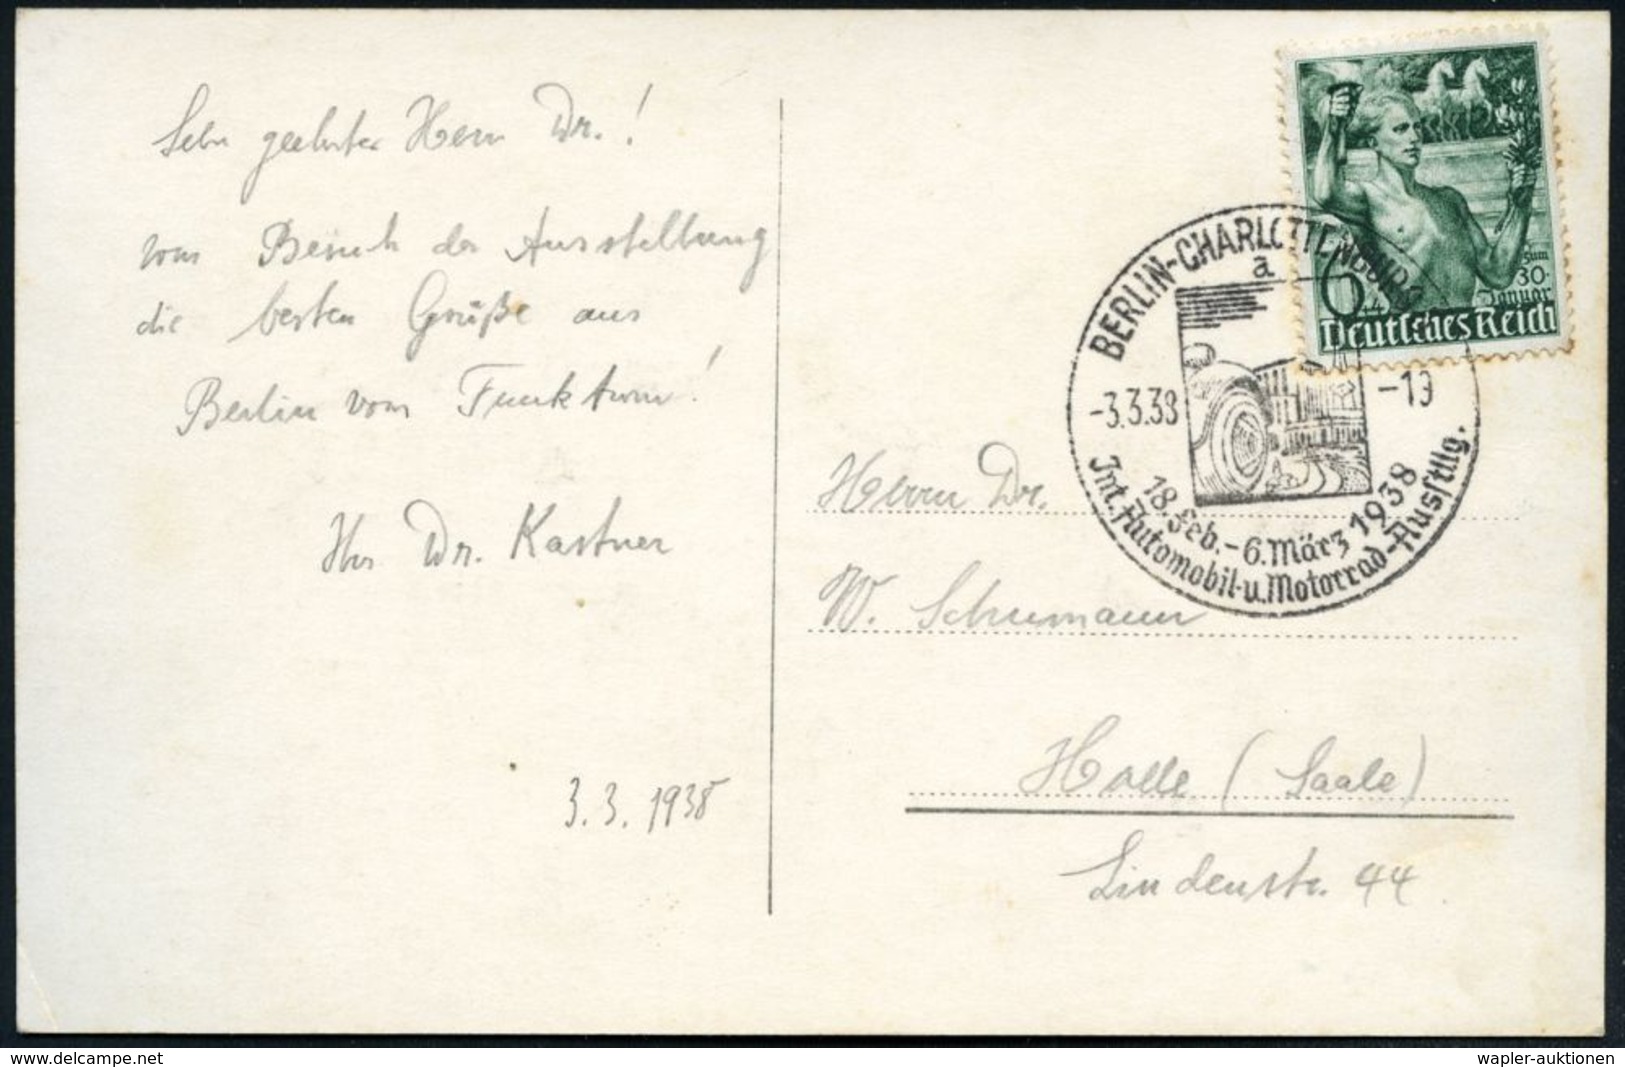 Sehr geehrter Herr Dr.!
vom Besuch der Ausstellung
die besten Grüße aus
Berlin vom Funkturm!
Ihr Dr. Kastner
3.3.1938
zum
30.
Januar
6+4
Deutsches Reich
BERLIN-CHARLOTTENBURG
a
-3.3.38 -19
18. Feb. - 6. März 1938
Int. Automobil- u. Motorrad-Ausstllg.
Herrn Dr.
W. Schumann
Halle (Saale)
Lindenstr. 44
www.delcampe.net
wapler-auktionen